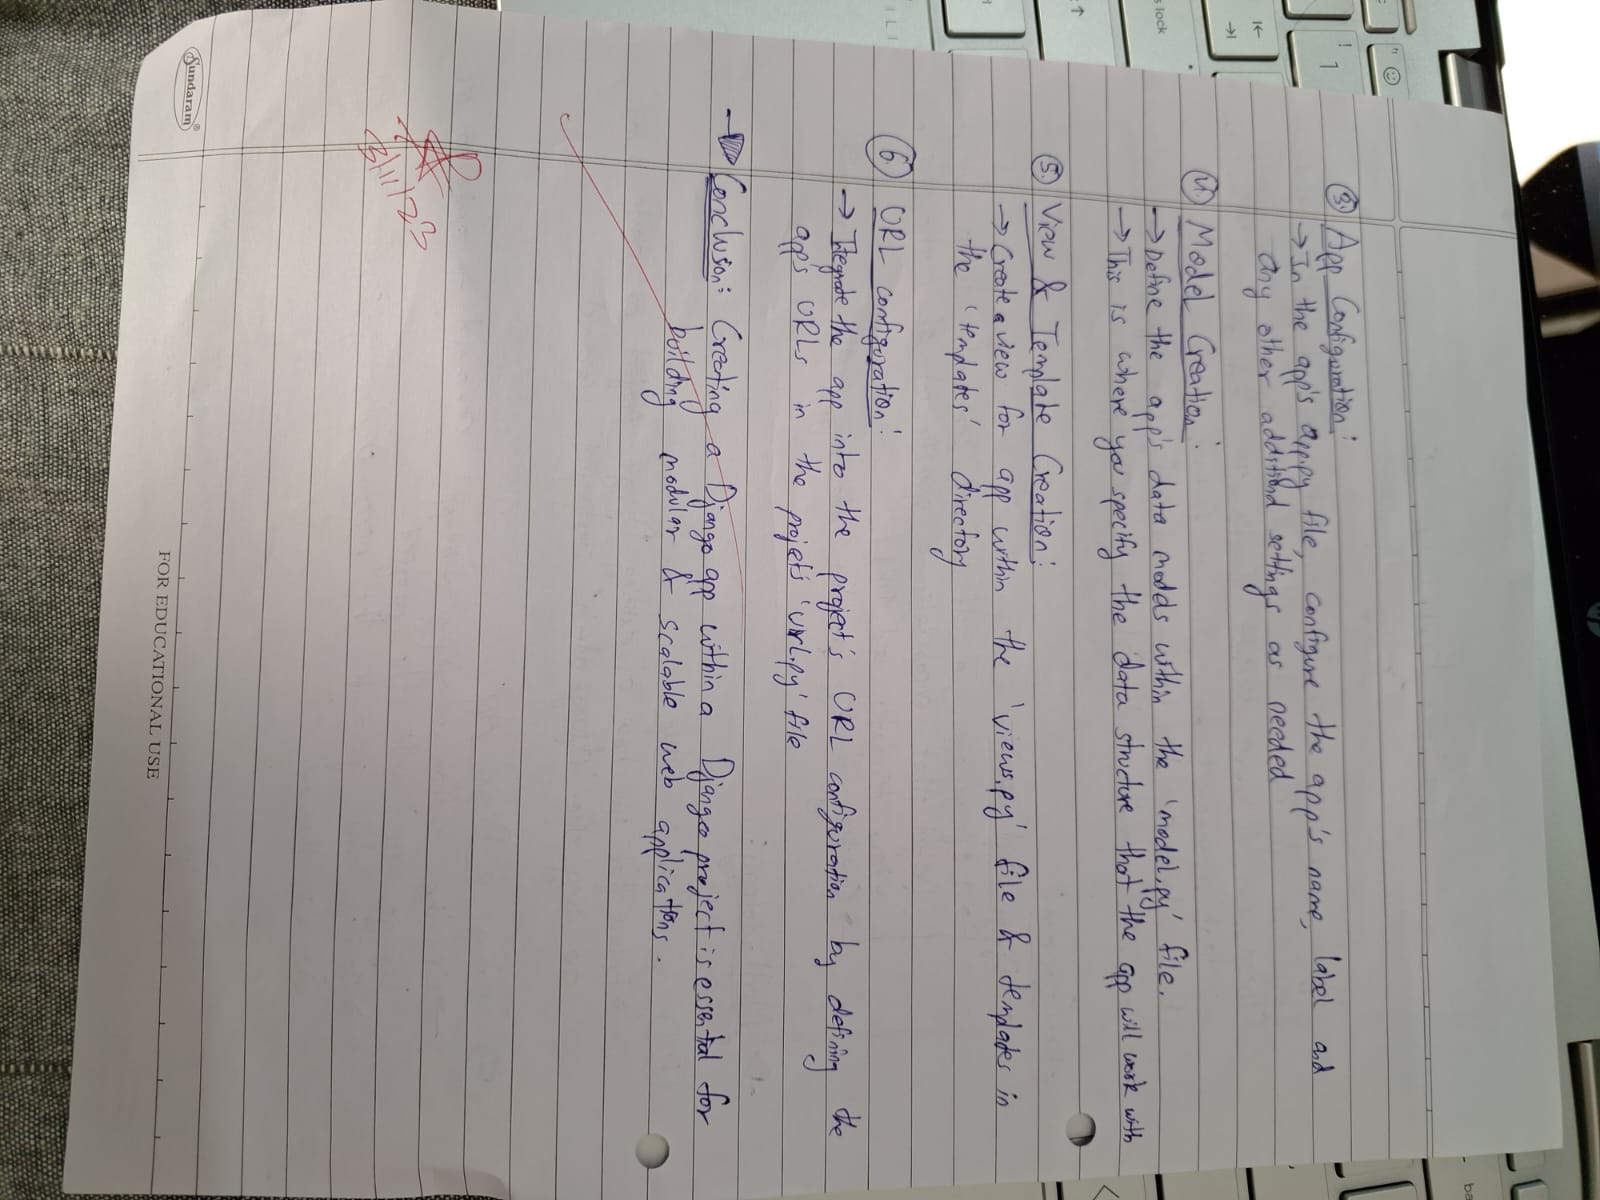 ③. App Configuration:
→ In the app's app.py file, configure the app's name, label and
any other additional settings as needed
④ Model Creation:
→ Define the app's data models within the 'model.py' file.
→ This is where you specify the data structure that the app will work with
⑤. View & Template Creation:
→ Create a view for app within the 'views.py' file & templates in
the 'templates' directory
⑥. URL configuration:
→ Integrate the app into the project's URL configuration by defining the
app's URLs in the projet's 'url.py' file
→ Conclusion: Creating a Django app within a Django project is essential for
building modular & scalable web applications.
3/11/23
Sundaram®
FOR EDUCATIONAL USE